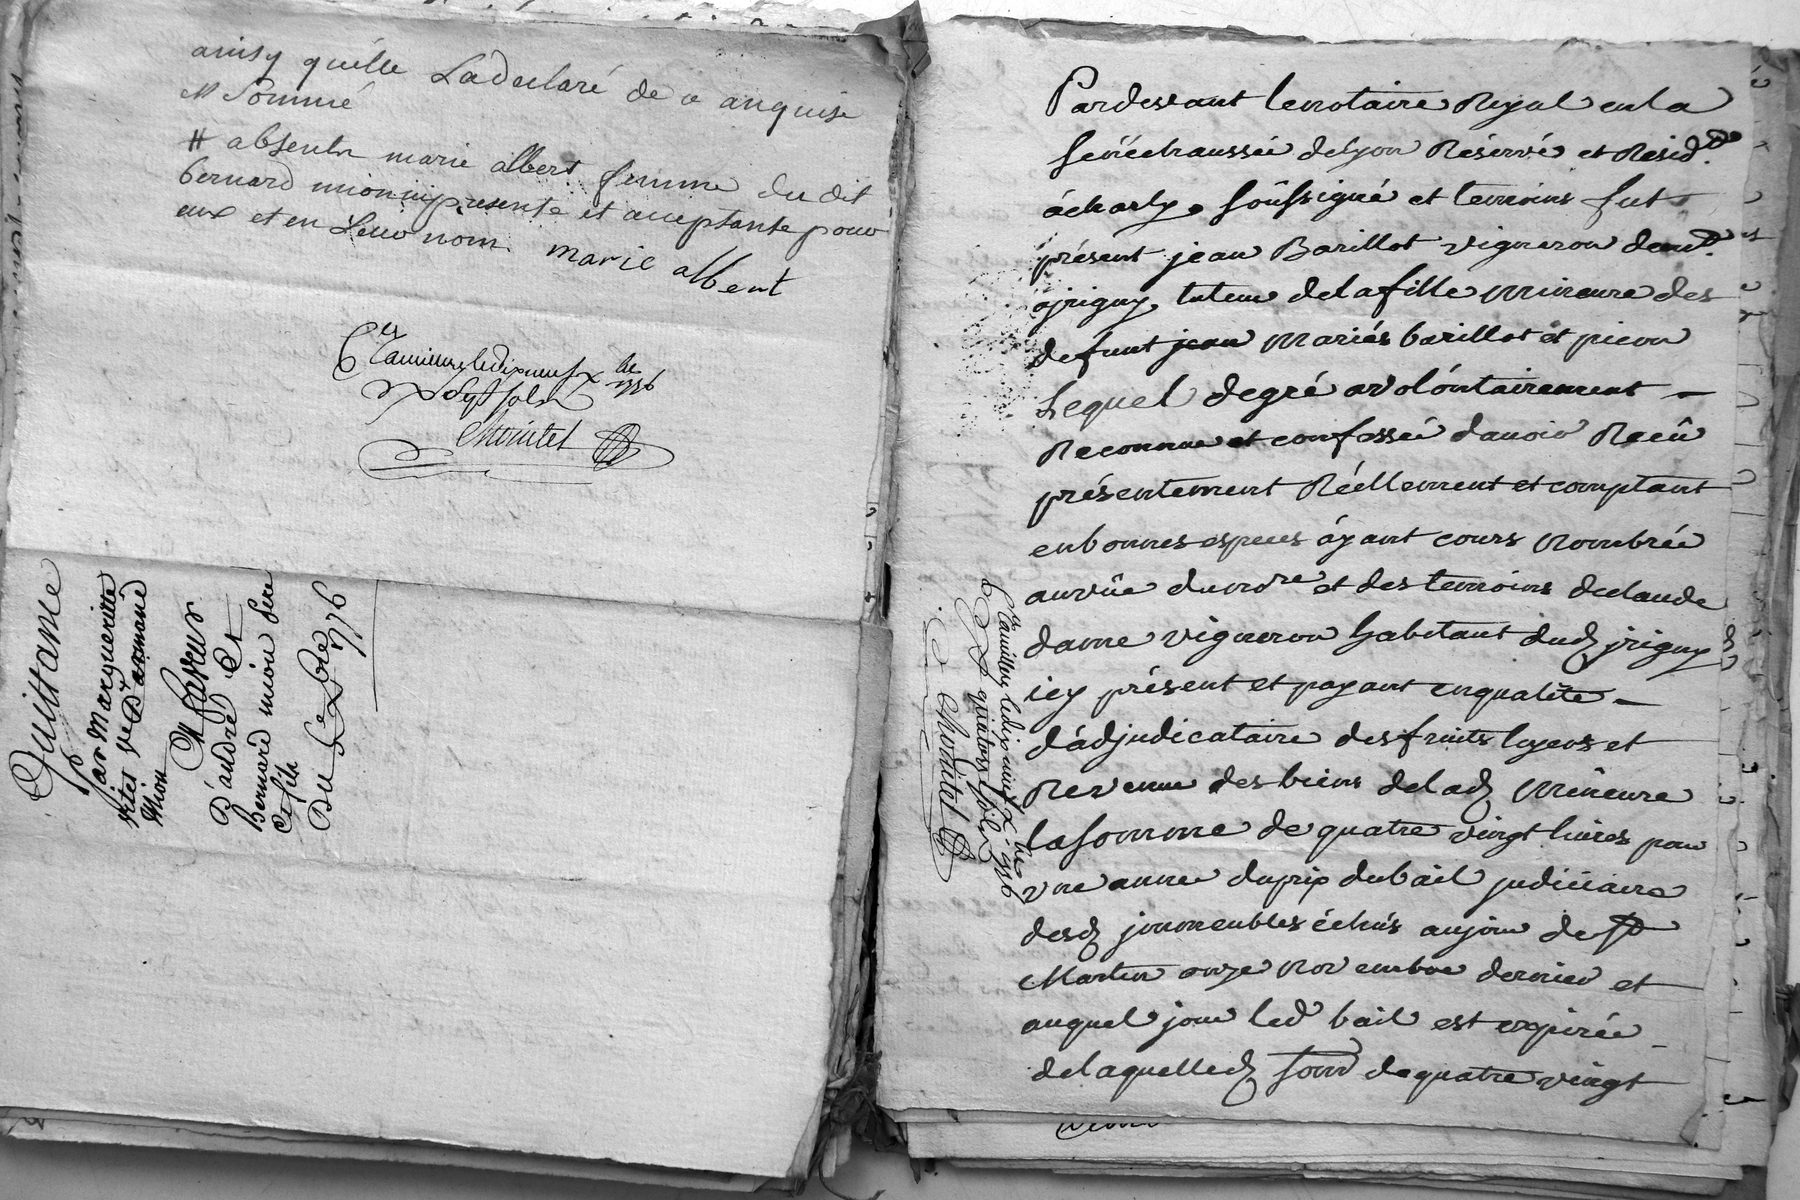 ainsy qu'elle La declaré de ce enquise
et sommé
# absents marie albert femme du dit
bernard mion icy presente et acceptante pour
eux et en Leur nom marie albert
C^lé à millery le dix neuf x^bre 1756
R douze sols
Chointet
Quittance
par Marguerite
v^e D'
Mion
En faveur
D'andré Et
Bernard mion pere
et fils
Du 5^e x^bre 1756
C^lé à millery le dix neuf x^bre 1756
R quatorze sols
Chointet
Pardevant le notaire Royal en la
senéchaussée de lyon Réservé et Resid^t
à charly soussigné et temoins fut
présent jean Barillot vigneron dem^t
à jrigny tuteur de la fille mineure des
defunt jean mariés barillot et pieron
Lequel de gré a volontairement
Reconnue et confessée d'avoir Receü
présentement Réellement et comptant
en bonnes especes ayant cours nombrée
au vüe du no^re et des temoins de claude
dame vigneron habitant dud jrigny
icy présent et payant en qualité
d'adjudicataire des fruits loyers et
Revenue des biens de lad mineure
la somme de quatre vingt livres pour
une année du prix du bail judiciaire
desd jmmeubles échus au jour de S^t
Martin onze novembre dernier et
auquel jour led bail est expirée
de laquelled somme de quatre vingt